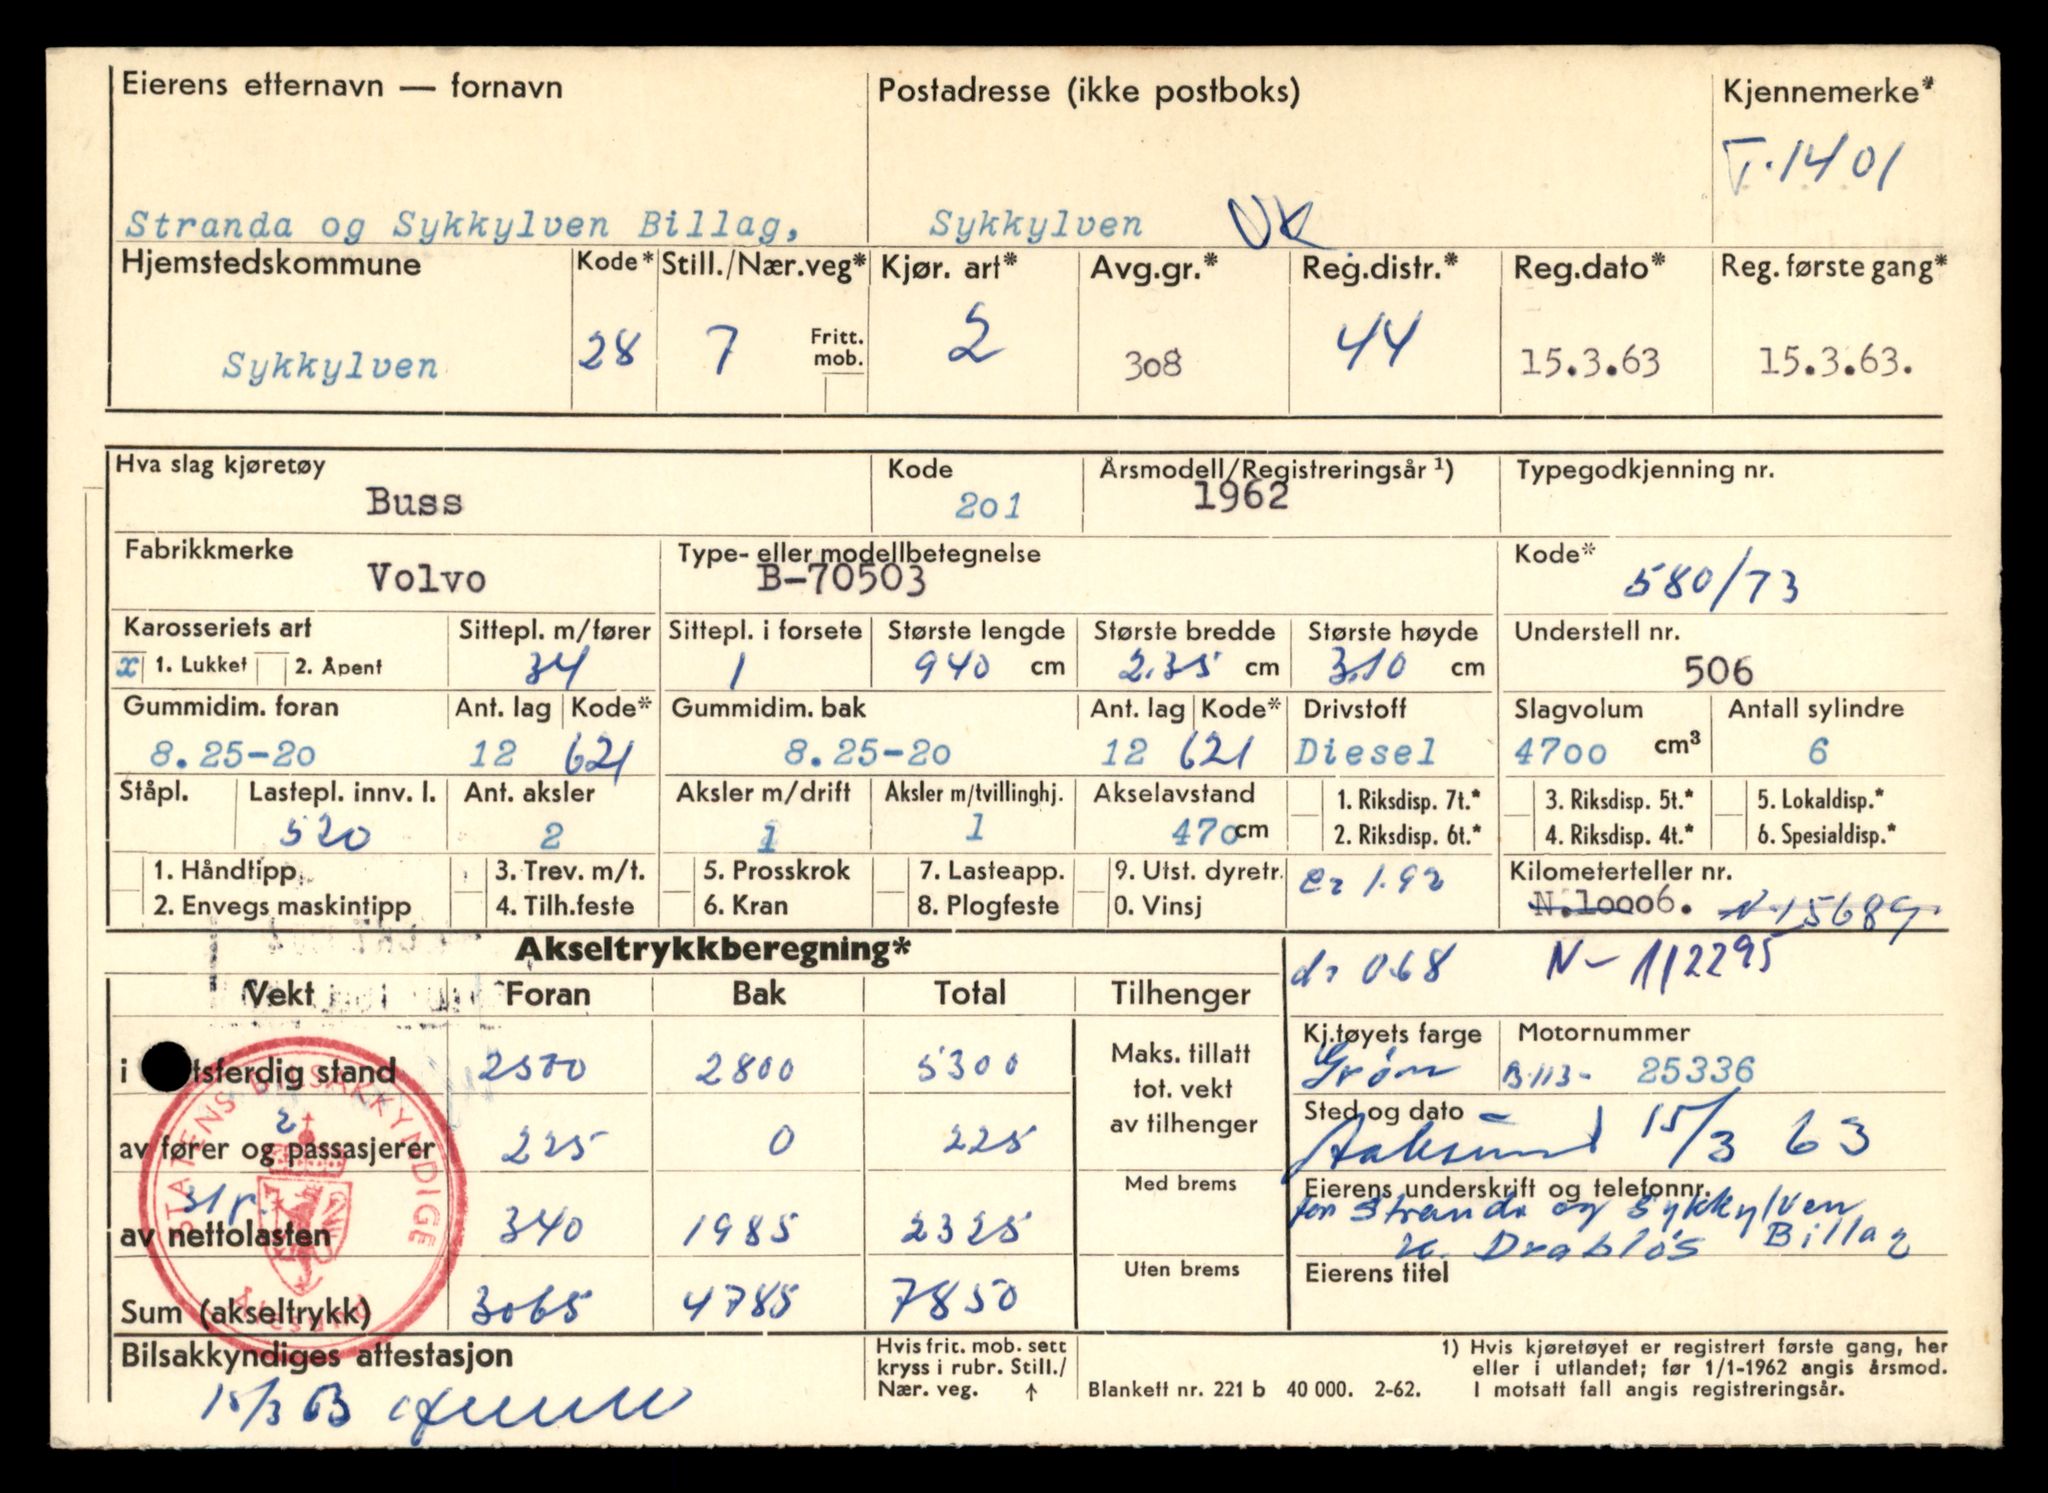 Eierens etternavn — fornavn Postadresse (ikke postboks) Kjennemerke*
T-1401
Stranda og Sykkylven Billag, Sykkylven
Hjemstedskommune Kode* Still./Nær.veg* Kjør. art* Avg.gr.* Reg.distr.* Reg.dato* Reg. første gang*
Sykkylven 28 7 Fritt. mob. 2 308 44 15.3.63 15.3.63.
Hva slag kjøretøy Kode Årsmodell/Registreringsår ¹) Typegodkjenning nr.
Buss 201 1962
Fabrikkmerke Type- eller modellbetegnelse Kode*
Volvo B-70503 580/73
Karosseriets art Sittepl. m/fører Sittepl. i forsete Største lengde Største bredde Største høyde Understell nr.
x 1. Lukket 2. Åpent 34 1 940 cm 2.35 cm 3.10 cm 506
Gummidim. foran Ant. lag Kode* Gummidim. bak Ant. lag Kode* Drivstoff Slagvolum Antall sylindre
8.25-20 12 621 8.25-20 12 621 Diesel 4700 cm³ 6
Ståpl. Lastepl. innv. l. Ant. aksler Aksler m/drift Aksler m/tvillinghj. Akselavstand 1. Riksdisp. 7t.* 3. Riksdisp. 5t.* 5. Lokaldisp.*
520 2 1 1 470 cm 2. Riksdisp. 6t.* 4. Riksdisp. 4t.* 6. Spesialdisp.*
1. Håndtipp 3. Trev. m/t. 5. Prosskrok 7. Lasteapp. 9. Utst. dyretr. Kilometerteller nr.
2. Envegs maskintipp 4. Tilh.feste 6. Kran 8. Plogfeste 0. Vinsj 1.92 N.10006. N-15689
Akseltrykkberegning* 0.68 N- 112295
Vekt Foran Bak Total Tilhenger
Kj.tøyets farge Motornummer
i tsferdig stand 2500 2800 5300 Maks. tillatt tot. vekt av tilhenger Grønn B.113- 25336
Sted og dato
2
av fører og passasjerer 225 0 225 Aalesund 15/3 63
Med brems Eierens underskrift og telefonnr.
31 p.
av nettolasten 340 1985 2325 for Stranda og Sykkylven Billag
Drabløs
Uten brems Eierens titel
Sum (akseltrykk) 3065 4785 7850
STATENS BILSAKKYNDIGE
Ålesund
Bilsakkyndiges attestasjon Hvis frit. mob. sett kryss i rubr. Still./ Nær. veg. ↑ Blankett nr. 221 b 40 000. 2-62.
1) Hvis kjøretøyet er registrert første gang, her
eller i utlandet; før 1/1-1962 angis årsmod.
I motsatt fall angis registreringsår.
15/3 63